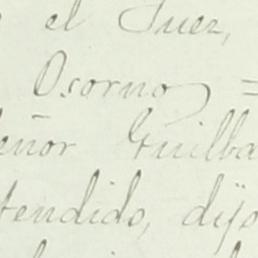 el Juez,
Osorno =
eñor Guilba
tendido, dijo